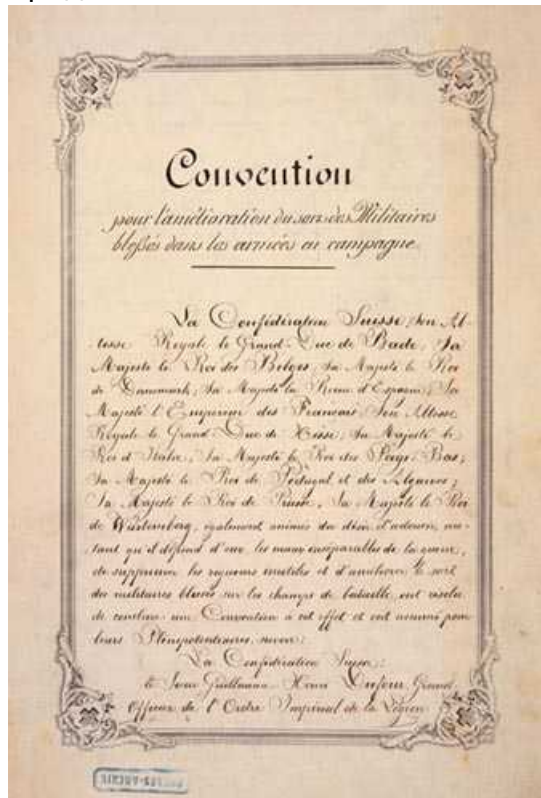 Convention
pour l'amélioration du sort des Militaires
blessés dans les armées en campagne.
La Confédération Suisse; Son Al-
tesse Royale le Grand-Duc de Bade; Sa
Majesté le Roi des Belges; Sa Majesté le Roi
de Danemark; Sa Majesté la Reine d'Espagne; Sa
Majesté l'Empereur des Français; Son Altesse
Royale le Grand-Duc de Hesse; Sa Majesté le
Roi d'Italie; Sa Majesté le Roi des Pays-Bas;
Sa Majesté le Roi de Portugal et des Algarves;
Sa Majesté le Roi de Prusse; Sa Majesté le Roi
de Würtemberg, également animés du désir d'adoucir, au-
tant qu'il dépend d'eux, les maux inséparables de la guerre,
de supprimer les rigueurs inutiles et d'améliorer le sort
des militaires blessés sur les champs de bataille, ont résolu
de conclure une Convention à cet effet et ont nommé pour
leurs Plénipotentiaires, savoir:
La Confédération Suisse:
le Sieur Guillaume-Henri Dufour, Grand
Officier de l'Ordre Impérial de la Légion